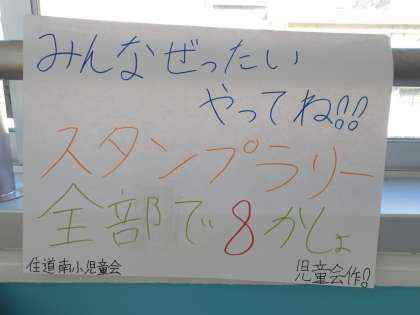 みんなぜったい
やってね!!
スタンプラリー
全部で8かしょ
住道南小児童会
児童会作!!